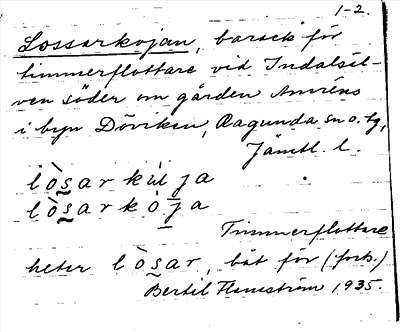 1-2.
Lossarkojan, barack för
timmerflottare vid Indalsäl-
ven söder om gården Amréns
i byn Döviken, Ragunda sn o. tg,
Jämtl. l.
lòsarkúlja
lòsarkòja
Timmerflottare
heter lòsar, båt för (forb.)
Bertil Flemström 1935.